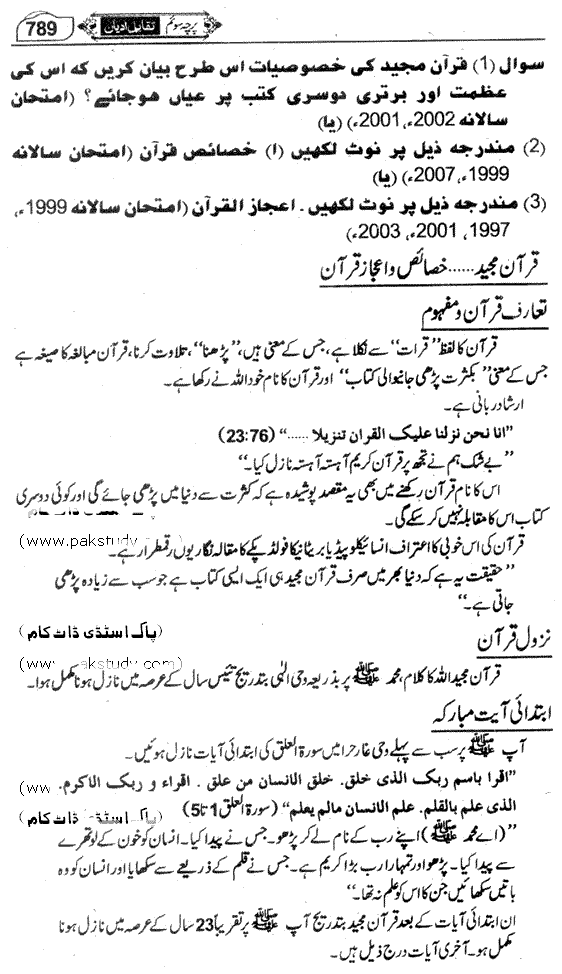 789 تقابل ادیان پرچہ سوئم
سوال (1) قرآن مجید کی خصوصیات اس طرح بیان کریں کہ اس کی
عظمت اور برتری دوسری کتب پر عیاں ہوجائے؟ (امتحان
سالانہ 2002ء، 2001ء) (یا)
(2) مندرجہ ذیل پر نوٹ لکھیں (ا) خصائص قرآن (امتحان سالانہ
1999ء، 2007ء) (یا)
(3) مندرجہ ذیل پر نوٹ لکھیں۔ اعجاز القرآن (امتحان سالانہ 1999ء،
1997، 2001ء، 2003ء)
قرآن مجید ...... خصائص و اعجاز قرآن
تعارف قرآن و مفہوم
قرآن کا لفظ ”قرات“ سے نکلا ہے، جس کے معنی ہیں، ”پڑھنا“، تلاوت کرنا، قرآن مبالغہ کا صیغہ ہے
جس کے معنی ”بکثرت پڑھی جانیوالی کتاب“ اور قرآن کا نام خود اللہ نے رکھا ہے۔
ارشاد ربانی ہے۔
”انا نحن نزلنا علیک القران تنزیلا ......“ (23:76)
”بے شک ہم نے تجھ پر قرآن کریم آہستہ آہستہ نازل کیا۔“
اس کا نام قرآن رکھنے میں بھی یہ مقصد پوشیدہ ہے کہ کثرت سے دنیا میں پڑھی جائے گی اور کوئی دوسری
کتاب اس کا مقابلہ نہیں کر سکے گی۔
(www.pakstudy.
قرآن کی اس خوبی کا اعتراف انسائیکلو پیڈیا بریٹانیکا فولڈیکے کا مقالہ نگار یوں رقمطراز ہے۔
”حقیقت یہ ہے کہ دنیا بھر میں صرف قرآن مجید ہی ایک ایسی کتاب ہے جو سب سے زیادہ پڑھی
جاتی ہے۔“
(پاک اسٹڈی ڈاٹ کام)
نزول قرآن
(www.pakstudy.com)
قرآن مجید اللہ کا کلام، محمد ﷺ پر بذریعہ وحی الٰہی بتدریج تئیس سال کے عرصہ میں نازل ہونا مکمل ہوا۔
ابتدائی آیت مبارکہ
آپ ﷺ پر سب سے پہلے وحی غار حرا میں سورۃ العلق کی ابتدائی آیات نازل ہوئیں۔
”اقرا باسم ربک الذی خلق۔ خلق الانسان من علق۔ اقراء و ربک الاکرم۔ (ww
الذی علم بالقلم۔ علم الانسان مالم یعلم“ (سورۃ العلق 1 تا 5) (پاک اسٹڈی ڈاٹ کام
”(اے محمد ﷺ) اپنے رب کے نام لے کر پڑھو۔ جس نے پیدا کیا۔ انسان کو خون کے لوتھڑے
سے پیدا کیا۔ پڑھو اور تمہارا رب بڑا کریم ہے۔ جس نے قلم کے ذریعے سے سکھایا اور انسان کو وہ
باتیں سکھائیں جن کا اس کو علم نہ تھا۔“
ان ابتدائی آیات کے بعد قرآن مجید بتدریج آپ ﷺ پر تقریباً 23 سال کے عرصہ میں نازل ہونا
مکمل ہو۔ آخری آیات درج ذیل ہیں۔